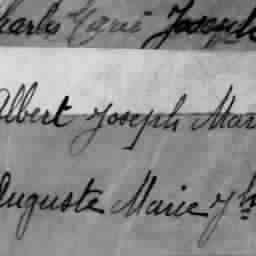 Charles Marie Joseph
Albert Joseph Mar
Auguste Marie Jh